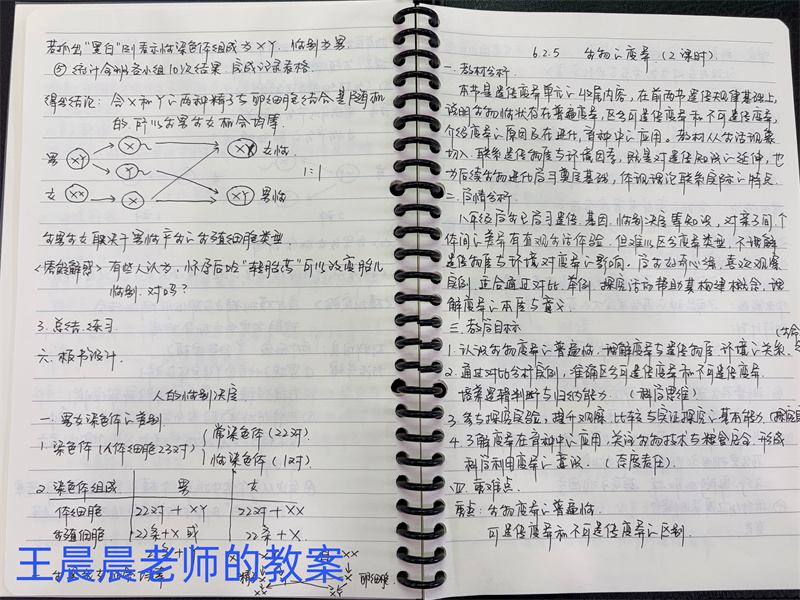 若抓出"黑白"则表示性染色体组成为XY,性别为男
⑤ 统计全班各小组10次结果,完成记录表格.
得出结论:含X和Y的两种精子与卵细胞结合是随机
的,所以生男生女机会均等.
男 XY X XX 女性
Y 1:1
女 XX X XY 男性
生男生女取决于男性产生的生殖细胞类型.
<情能解惑> 有些人认为,怀孕后吃"转胎药"可以改变胎儿
性别.对吗?
3. 总结 练习
六. 板书设计.
人的性别决定
一. 男女染色体的差别
1. 染色体(人体细胞23对) 常染色体(22对)
性染色体(1对)
2. 染色体组成 男 女
体细胞 22对+XY 22对+XX
生殖细胞 22条+X 或 22条+X
卵细胞
6.2.5 生物的变异(2课时)
一. 教材分析
本节是遗传变异单元的收尾内容,在前两节遗传规律基础上,
说明生物性状存在普遍变异,区分可遗传变异和不可遗传变异,
介绍变异的原因及在进化,育种中的应用。教材从生活现象
切入,联系遗传物质与环境因素,既是对遗传知识的延伸,也
为后续生物进化学习奠定基础,体现理论联系实际的特点.
二. 学情分析
八年级学生已学习遗传、基因、性别决定等知识,对亲子间、个
体间的差异有直观生活体验.但难以区分变异类型,不理解
遗传物质与环境对变异的影响.学生好奇心强,喜欢观察
实例,适合通过对比、举例、探究活动帮助其构建概念,理
解变异的本质与意义.
三. 教学目标
1. 认识生物变异的普遍性,理解变异与遗传物质、环境的关系.
2. 通过对比分析实例,准确区分可遗传变异和不可遗传变异.
培养逻辑判断与归纳能力.(科学思维)
3. 参与探究实验,提升观察、比较与实证探究的基本能力.
4. 了解变异在育种中的应用,关注生物技术与粮食安全,形成
科学利用变异的意识.(态度责任).
四. 重难点
重点:生物变异的普遍性.
可遗传变异和不可遗传变异的区别.
王晨晨老师的教案